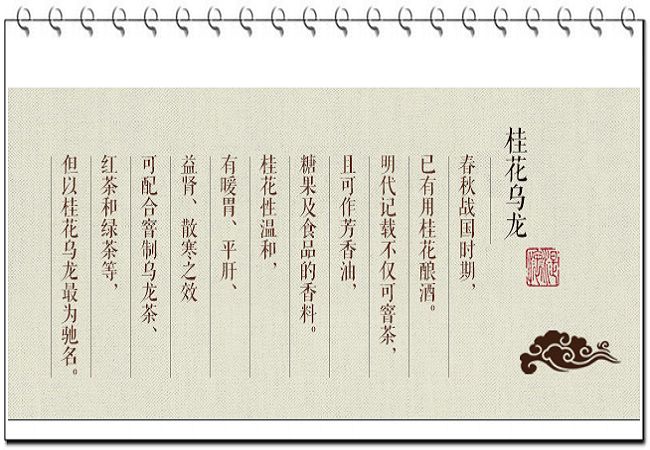 桂花乌龙
春秋战国时期，
已有用桂花酿酒。
明代记载不仅可窨茶，
且可作芳香油，
糖果及食品的香料。
桂花性温和，
有暖胃、平肝、
益肾、散寒之效
可配合窨制乌龙茶、
红茶和绿茶等，
但以桂花乌龙最为驰名。